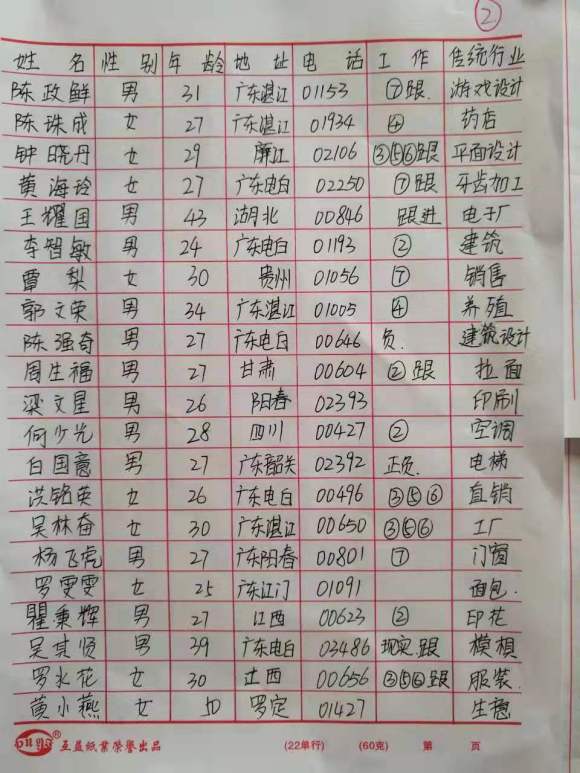 ②
姓名 性别 年龄 地址 电话 工作 传统行业
陈政鲜 男 31 广东湛江 01153 ⑦跟. 游戏设计
陈珠成 女 27 广东湛江 01934 ④ 药店
钟晓丹 女 29 廉江 02106 ③⑤⑥跟 平面设计
黄海玲 女 27 广东电白 02250 ⑦跟 牙齿加工
王耀国 男 43 湖北 00846 跟进 电子厂
李智敏 男 24 广东电白 01193 ② 建筑
覃梨 女 30 贵州 01056 ⑦ 销售
郭文荣 男 34 广东湛江 01005 ④ 养殖
陈强奇 男 27 广东电白 00646 负. 建筑设计
周生福 男 27 甘肃 00604 ②跟 拉面
梁文星 男 26 阳春 02393 印刷
何少光 男 28 四川 00427 ② 空调
白国意 男 27 广东韶关 02392 正负. 电梯
洪铭英 女 26 广东电白 00496 ③⑤⑥ 直销
吴林奋 女 30 广东湛江 00650 ③⑤⑥ 工厂
杨飞虎 男 27 广东阳春 00801 ⑦ 门窗
罗雯雯 女 25 广东江门 01091 面包.
瞿秉辉 男 27 江西 00623 ② 印花
吴其贤 男 39 广东电白 03486 现实.跟 模具
罗水花 女 30 江西 00656 ③⑤⑥跟 服装.
黄小燕 女 50 罗定 01427
互益纸业荣誉出品 (22单行) (60克) 第 页